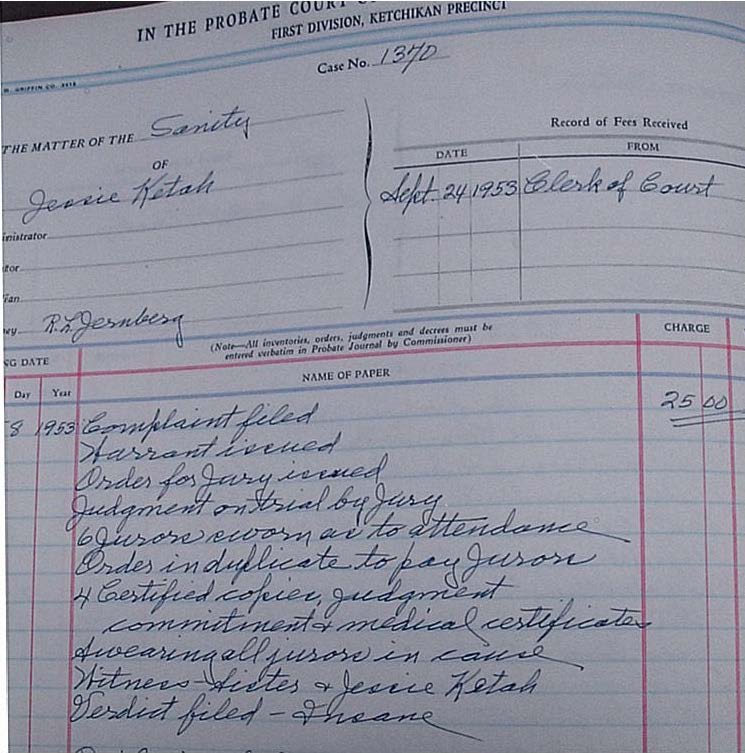 IN THE PROBATE COURT
FIRST DIVISION, KETCHIKAN PRECINCT
Case No. 1370
W. GRIFFIN CO.
THE MATTER OF THE Sanity
OF
Jessie Ketah
inistrator
tor
ian
ey R.L. Jernberg
Record of Fees Received
DATE FROM
Sept. 24 1953 Clerk of Court
(Note—All inventories, orders, judgments and decrees must be
entered verbatim in Probate Journal by Commissioner)
CHARGE
NG DATE
NAME OF PAPER
Day Year
8 1953 Complaint filed 25 00
Warrant issued
Order for Jury issued
Judgment on trial by Jury
6 Jurors sworn as to attendance
Order in duplicate to pay Jurors
4 Certified copies Judgment
commitment & medical certificates
Swearing all jurors in cause
Witness - Sister & Jessie Ketah
Verdict filed - Insane